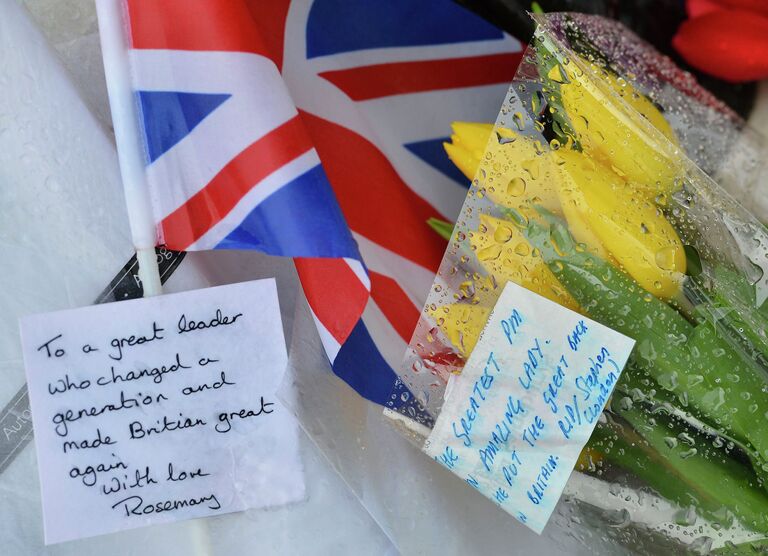 To a great leader
who changed a
generation and
made Britian great
again
With love
Rosemary
HE GREATEST PM
N AMAZING LADY.
HE PUT THE GREAT BACK
N BRITAIN. RIP/ Stephen
(London)